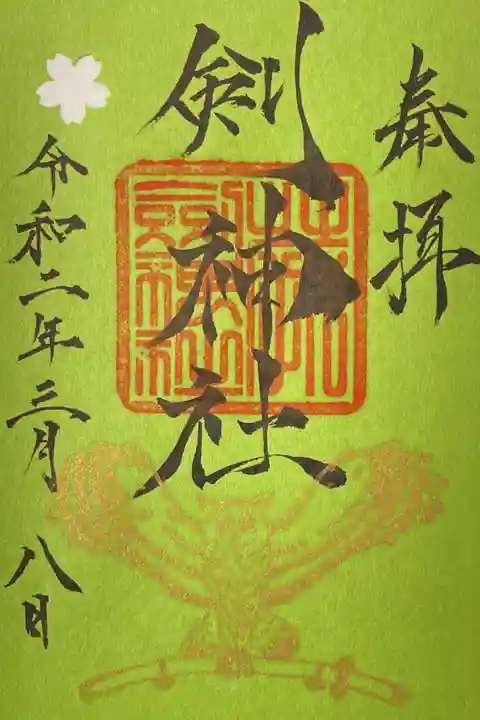 奉拝
剣神社
令和二年三月八日